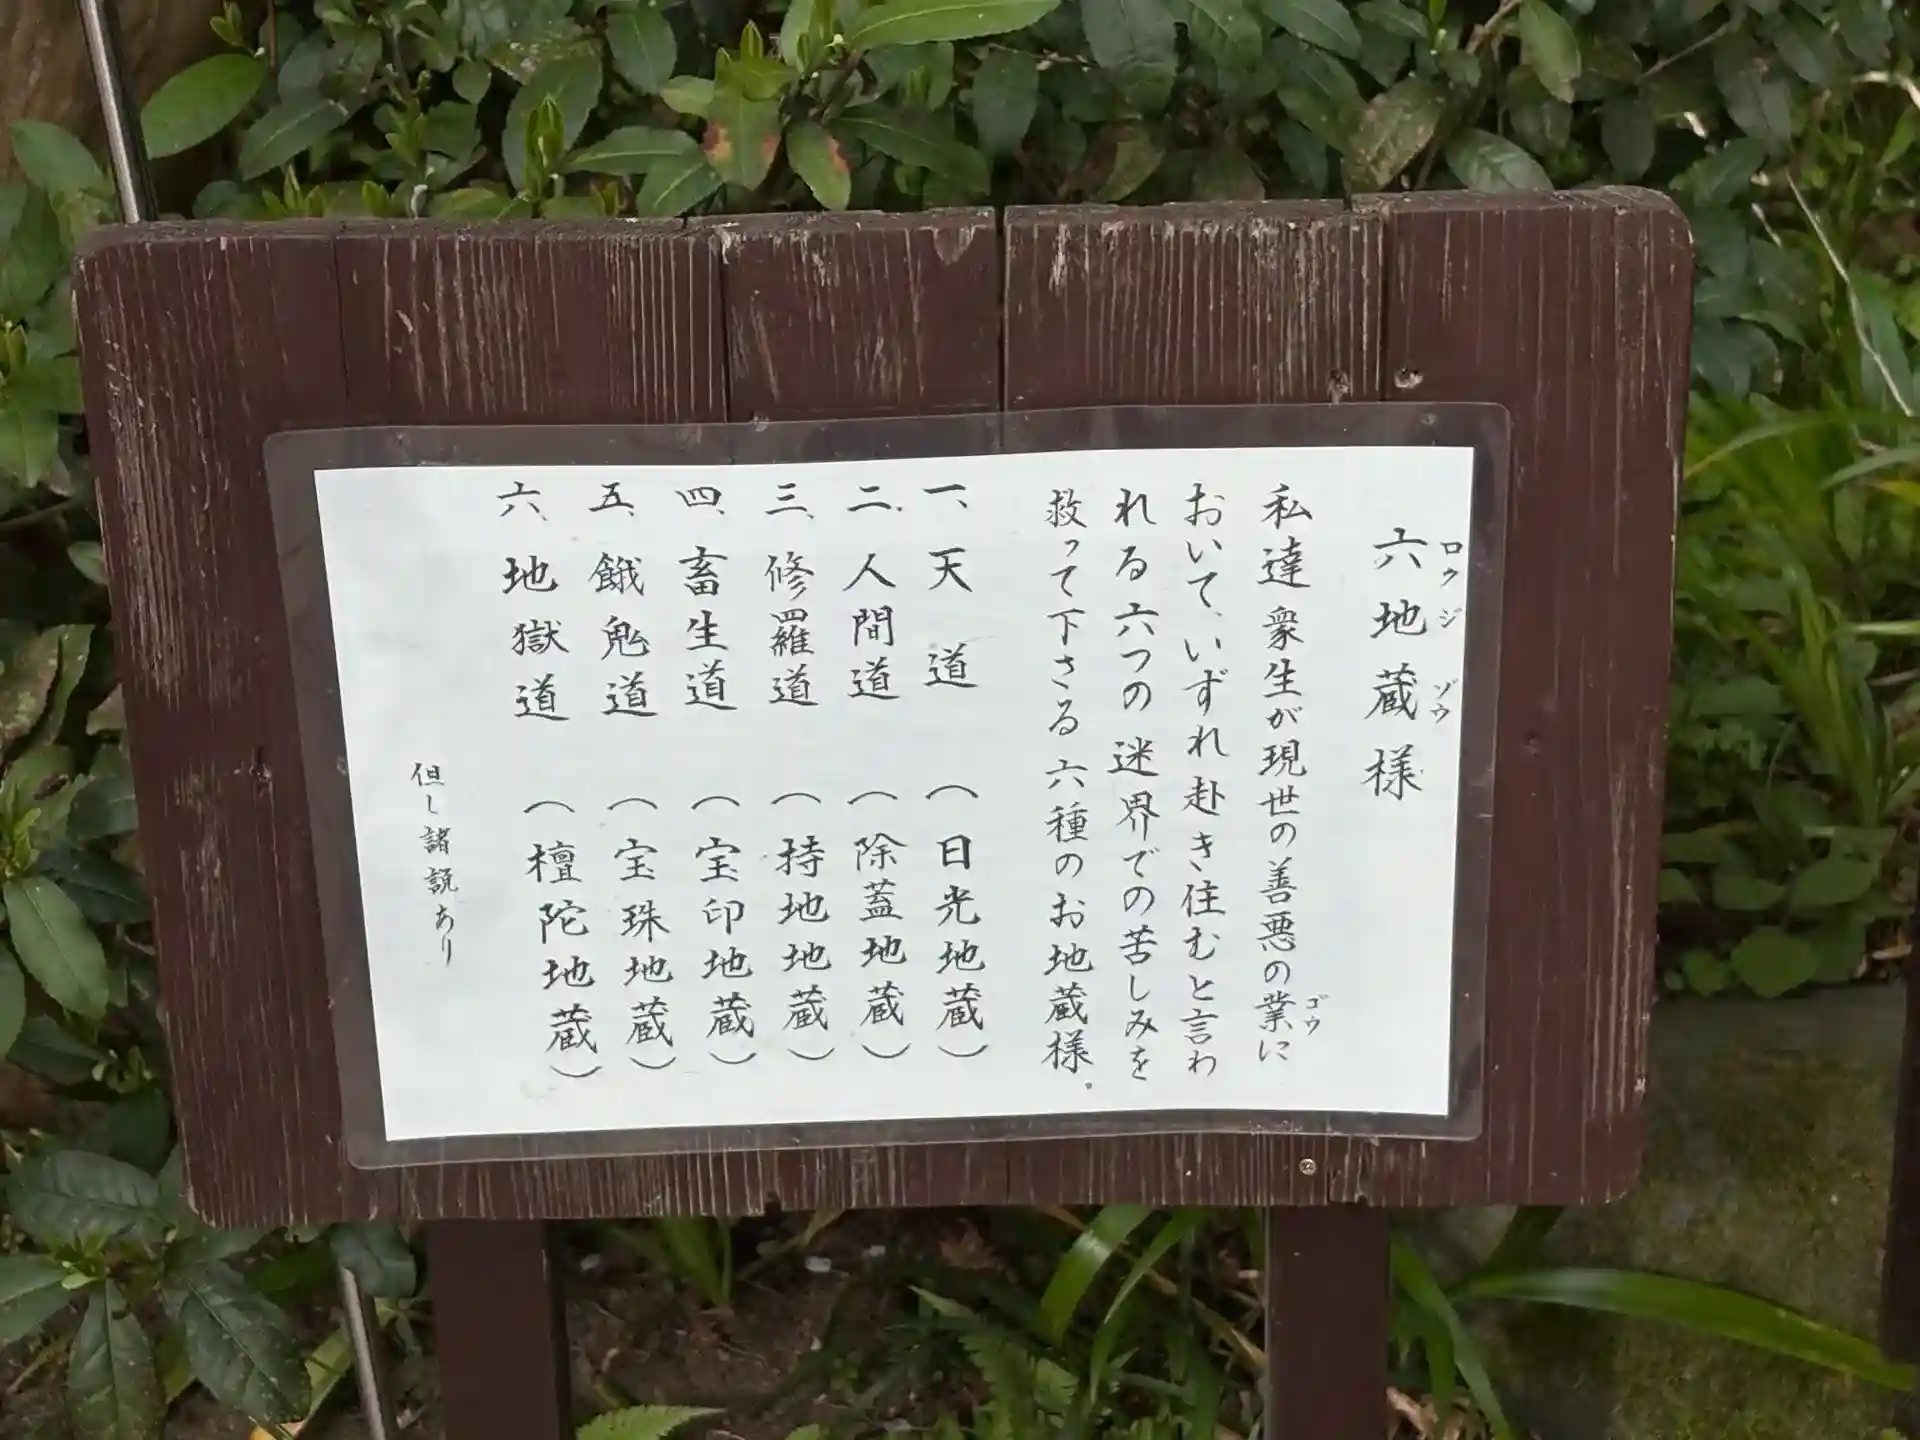 六地蔵様
ロクジゾウ
私達衆生が現世の善悪の業に
ゴウ
おいて、いずれ赴き住むと言わ
れる六つの迷界での苦しみを
救って下さる六種のお地蔵様。
一、天道（日光地蔵）
二、人間道（除蓋地蔵）
三、修羅道（持地地蔵）
四、畜生道（宝印地蔵）
五、餓鬼道（宝珠地蔵）
六、地獄道（檀陀地蔵）
但し諸説あり